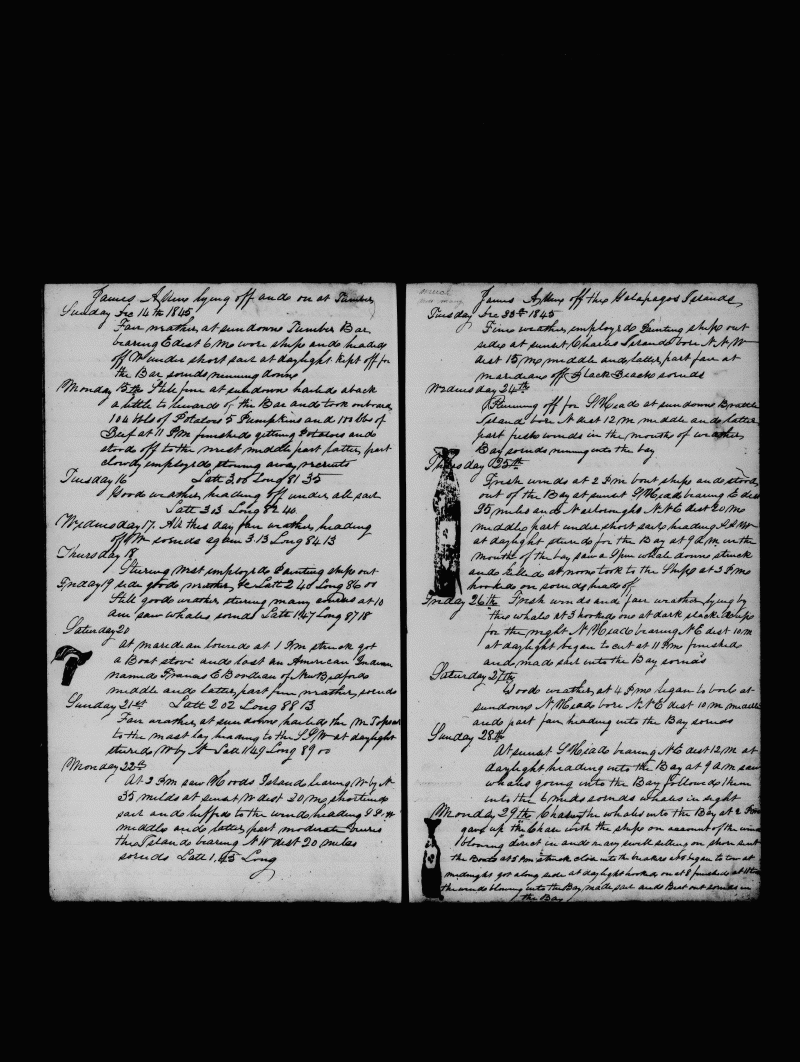 James Allen lying off and on at Tumber
Sunday Dec 14th 1845
Fair weather at sundown Tumber Bar
bearing E dist 6 m wore ship and headed
off W under short sail at daylight kept off for
the Bar sounds running down
Monday 15th Still fine at sundown hauled aback
a little to leward of the Bar and took onboard
104 bbls of Potatoes 5 Pumpkins and 100 lbs of
Beef at 11 P.M finished getting Potatoes and
stood off to the west middle part latter part
cloudy employed stowing away recruits
Tuesday 16 Latt 3.06 Long 81 35
Good weather heading off under all sail
Latt 3.13 Long 82 40
Wednesday 17. All this day fair weather heading
off W sounds again 3.13 Long 84 13
Thursday 18
Stearing West employed Painting ship out
Friday 19 side good weather Latt 2 40 Long 86 00
Still good weather stering many at 10
am saw whales sound Latt 1.47 Long 87 18
Saturday 20
at meredian lowred at 1 P.m struck got
a Boat stove and lost an American Indian
named Francis E Bordean of New Bedford
middle and latter part fine weather sounds
Sunday 21st Latt 2 02 Long 88 13
Fair weather at sundown hauled the M Topsail
to the mast lay heading to the S.S.W at daylight
steered W by N Latt 1.49 Long 89 00
Monday 22nd
At 2 P.m saw Hoods Island bearing W by N
35 miles at sunset W dist 20 m shortened
sail and luffed to the wind heading
middle and latter part moderate
the Island bearing N W dist 20 miles
sounds Latt 1.45 Long
James Allen off the Galapagos Islands
Tuesday Dec 23rd 1845
Fine weather employed Painting ships out
side at sunset Charles Island bore N.N.W
dist 15 m middle and latter part fair at
meridian off Black Beach sounds
Wednesday 24th
Running off for S Head at sundown Brattle
Island bore N dist 12 m middle and latter
part fresh winds in the mouth of weather
Bay sounds running into the bay
Thursday 25th
Fresh winds at 2 P.m bout ship and stood
out of the Bay at sunset S Head bearing E dist
35 miles and Narborough N.N.E dist 20 m
middle part under short sail heading
at daylight steered for the Bay at 9 A.M in the
mouth of the bay saw a Spm whale down struck
and killed at noon took to the Ship at 3 P.m
hooked on sounds head of
Friday 26th Fresh winds and fair weather lying by
this whale at 3 hooked on at dark slack
for the night N Head bearing N.E dist 10 m
at daylight began to cut at 11 A.m finished
and made sail into the Bay sounds
Saturday 27th
Good weather at 4 P.m began to boil at
sundown N Head bore N.N.E dist 10 m middle
and part fair heading into the Bay sounds
Sunday 28th
At sunset S Head bearing N.E dist 12 m at
daylight heading into the Bay at 9 a.m saw
whales going into the Bay followed them
into the sounds whales in sight
Monday 29th Chased the whales into the Bay at 2 P.m
gave up the Chase with the ship on account of the wind
blowing direct in and heavy swell setting on shore sent
the Boats at 5 P.m struck close into the breakers and began to tow at
midnight got along side at daylight hooked on at 8 finished at
the wind blowing into the Bay made sail and Beat out sounds in
the Bay